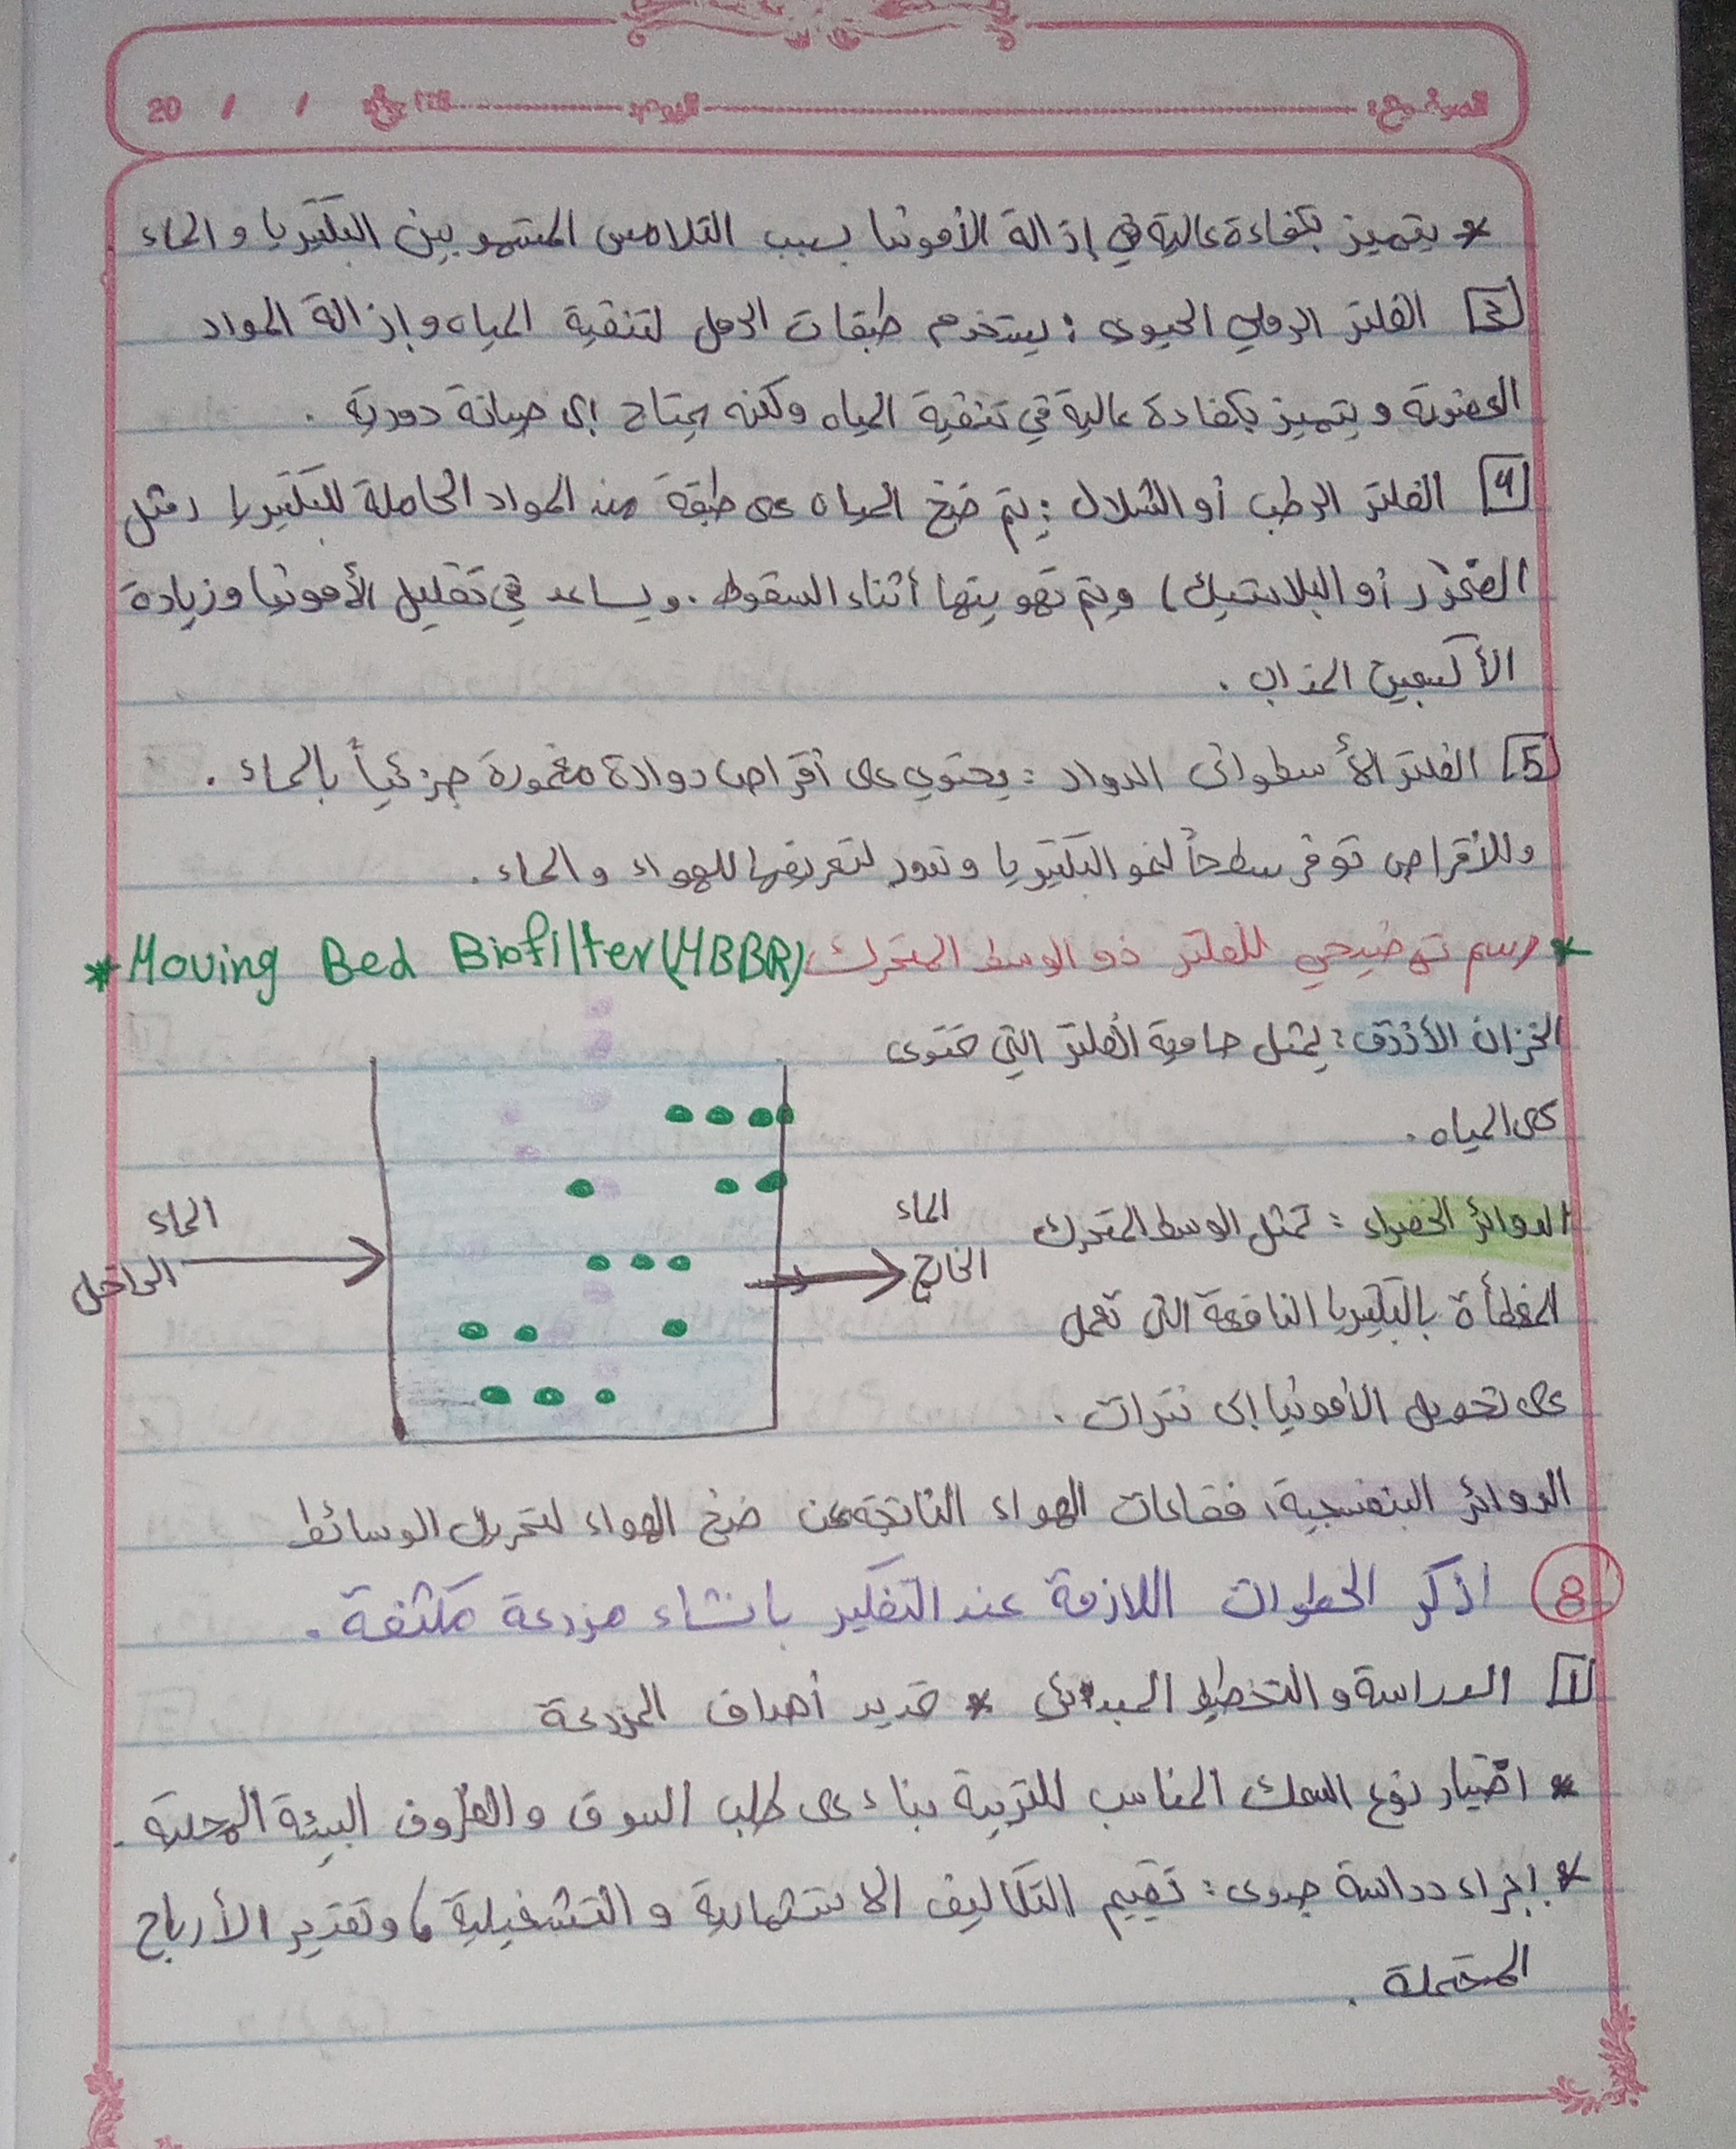 الموضوع: اليوم: التاريخ / / 20
* يتميز بكفاءة عالية في إزالة الأمونيا بسبب التلامس المستمر بين البكتيريا والماء
3 الفلتر الرملي الحيوي: يستخدم طبقات الرمل لتنقية المياه وإزالة المواد
العضوية ويتميز بكفاءة عالية في تنقية المياه ولكنه يحتاج إلى صيانة دورية.
4 الفلتر الرطب أو الشلال: يتم ضخ المياه على طبقة من المواد الحاملة للبكتيريا (مثل
الصخور أو البلاستيك) ويتم تهويتها أثناء السقوط. ويساعد في تقليل الأمونيا وزيادة
الأكسجين المذاب.
5 الفلتر الأسطواني الدوار: يحتوي على أقراص دوارة مغمورة جزئياً بالماء.
وللأقراص توفر سطحاً لنمو البكتيريا وتدور لتعريضها للهواء والماء.
* رسم توضيحي للفلتر ذو الوسط المتحرك Moving Bed Biofilter (MBBR) *
الخزان الأزرق: يمثل حاوية الفلتر التي تحتوى
على المياه.
الدوائر الخضراء: تمثل الوسط المتحرك
المغطأة بالبكتيريا النافعة التي تعمل
على تحويل الأمونيا إلى نترات.
الماء
الداخل
الماء
الخارج
الدوائر البنفسجية: فقاعات الهواء الناتجة عن ضخ الهواء لتحريك الوسائط
8 اذكر الخطوات اللازمة عند التفكير بانشاء مزرعة مكثفة.
1 الدراسة والتخطيط المبدئي * تحديد أهداف المزرعة
* اختيار نوع السمك المناسب للتربية بناء على طلب السوق والظروف البيئة المحلية.
* إجراء دراسة جدوى: تقييم التكاليف الاستثمارية والتشغيلية، وتقدير الأرباح
المحتملة.